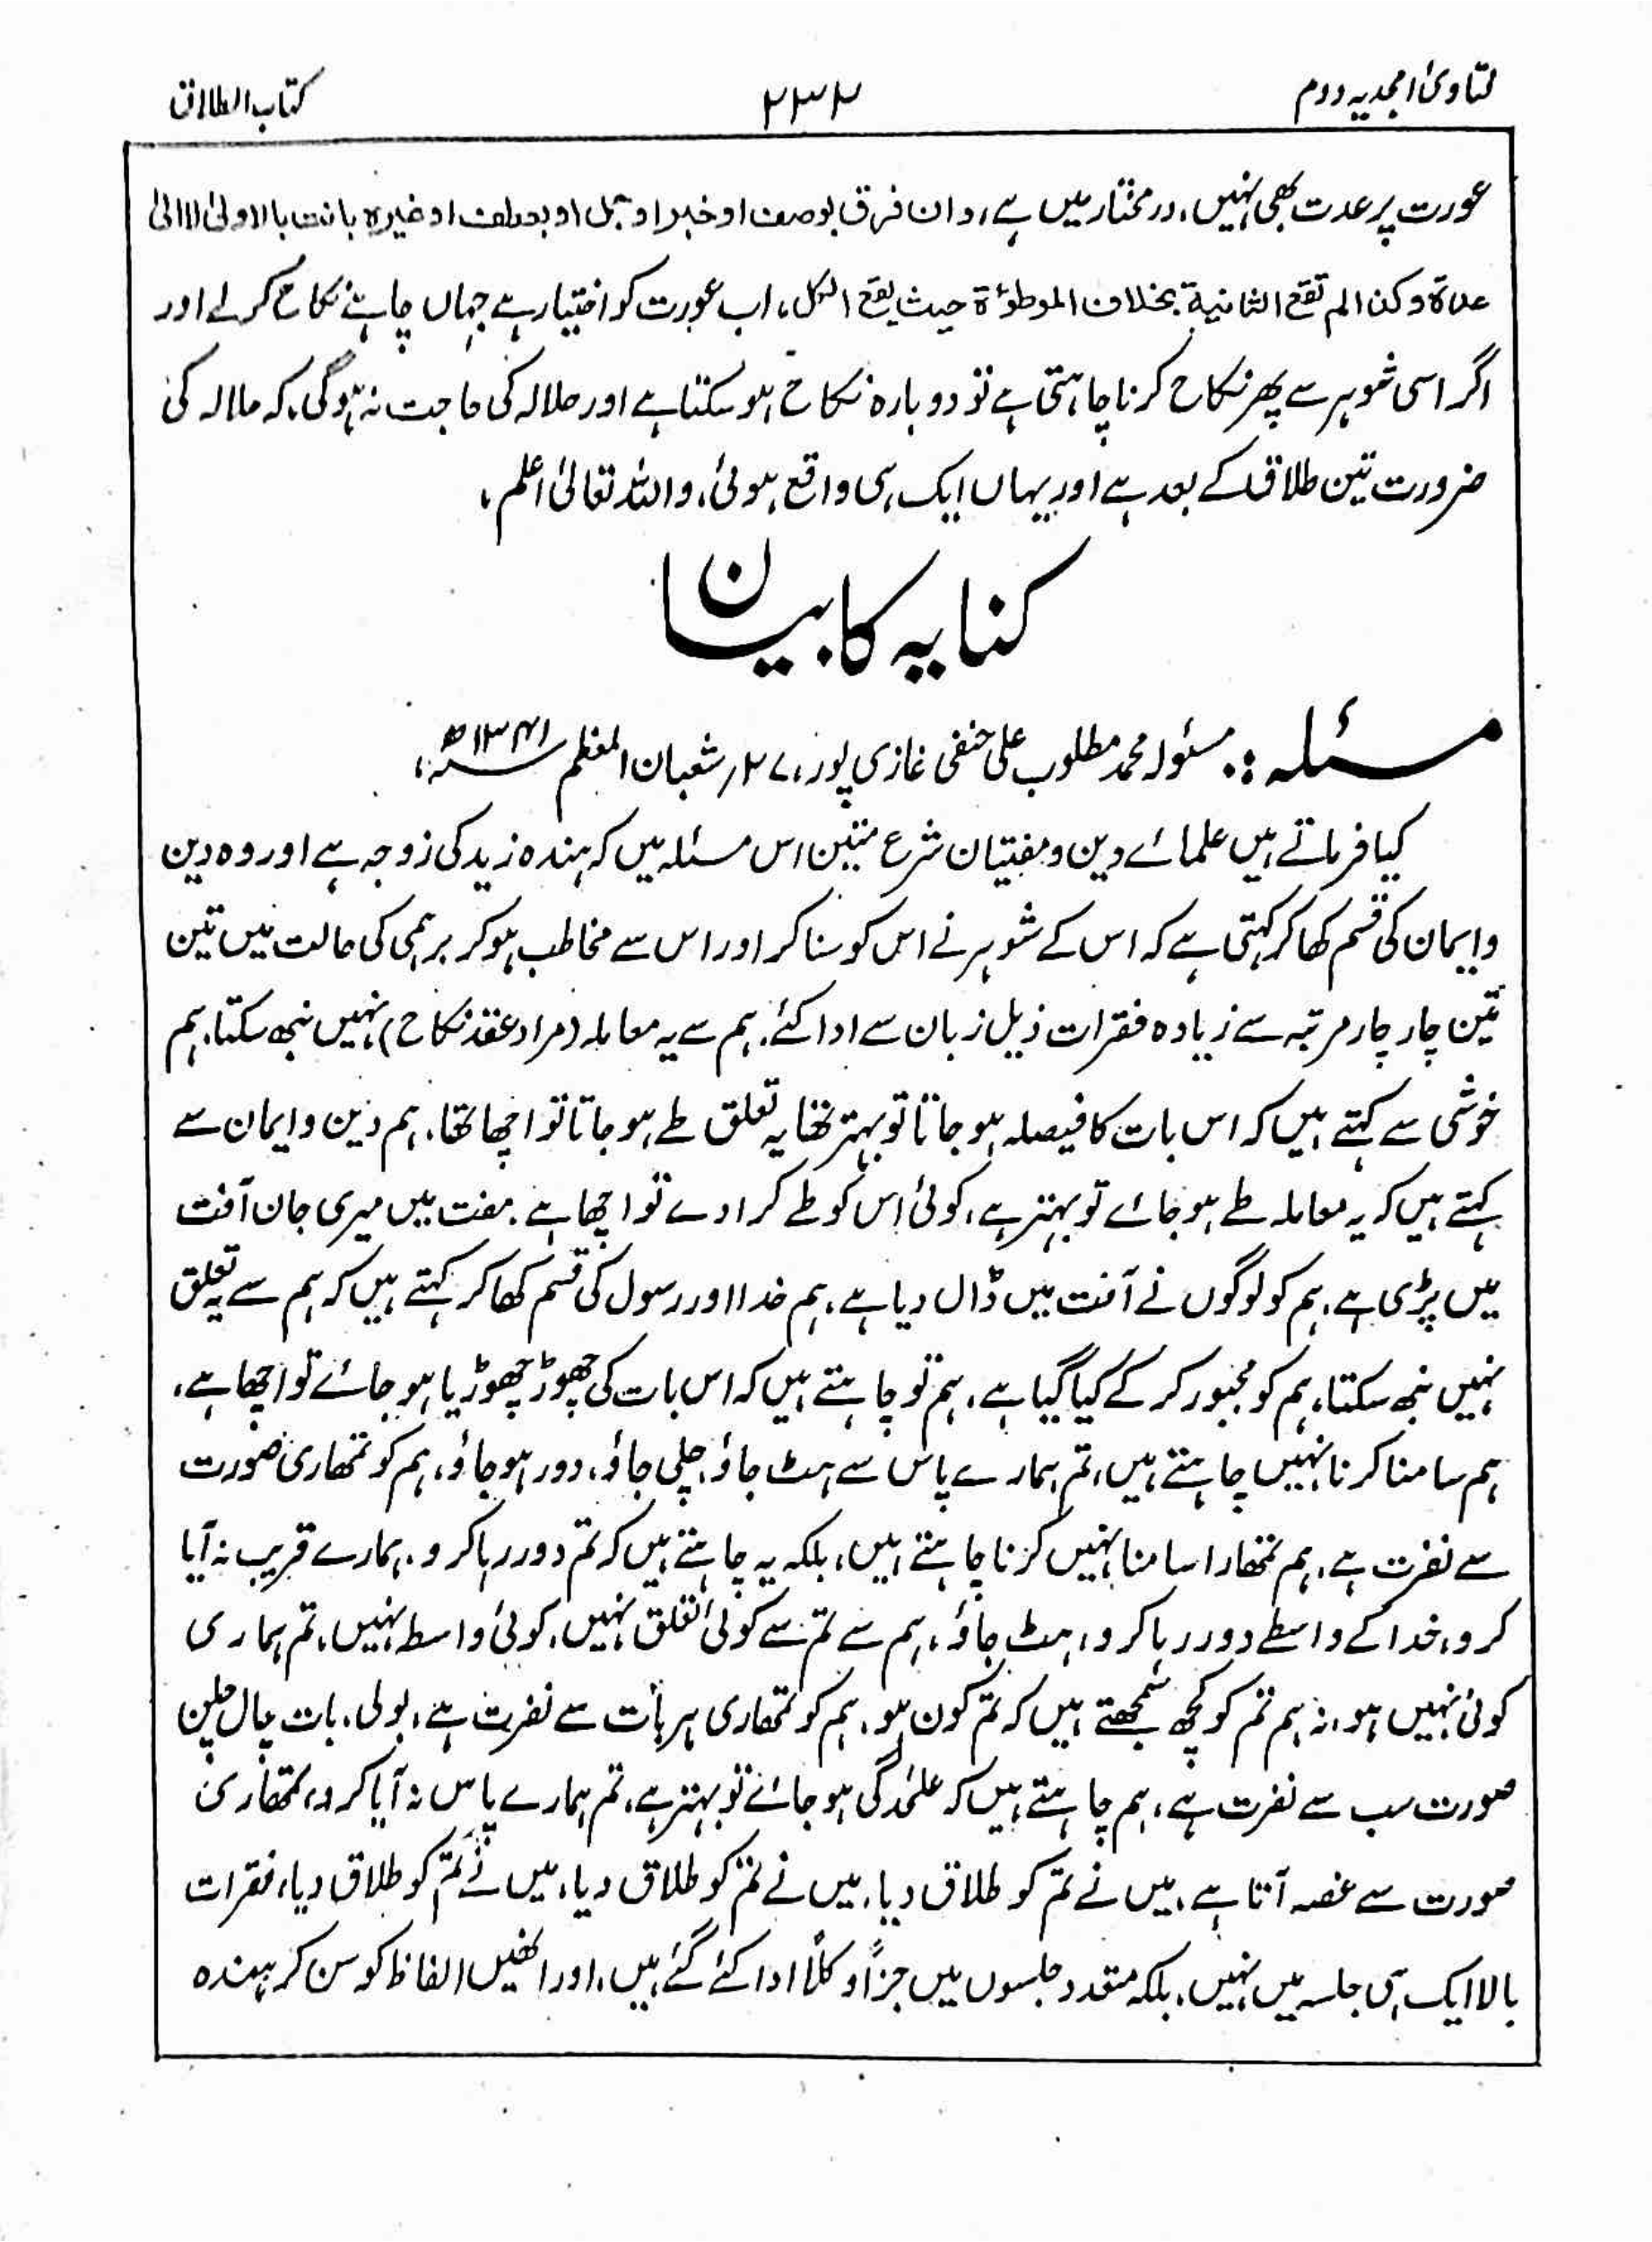 فتاویٰ امجدیہ دوم
۲۳۲
کتاب الطلاق
عورت پر عدت بھی نہیں، درمختار میں ہے، وان فرق بوصف او خبر او جمل او بعطف او غیرہ بانت بالاولیٰ لا الیٰ
عدۃ وکذا لم تقع الثانیۃ بخلاف الموطؤۃ حیث یقع الکل، اب عورت کو اختیار ہے جہاں چاہئے نکاح کرلے اور
اگر اسی شوہر سے پھر نکاح کرنا چاہتی ہے تو دوبارہ نکاح ہوسکتا ہے اور حلالہ کی حاجت نہ ہوگی، کہ حلالہ کی
ضرورت تین طلاق کے بعد ہے اور یہاں ایک ہی واقع ہوئی، واللہ تعالیٰ اعلم،
کنایہ کا بیان
مسئلہ :۔ مسئولہ محمد مطلوب علی حنفی غازی پور، ۲۷؍ شعبان المعظم ۱۳۴۱ھ،
کیا فرماتے ہیں علمائے دین ومفتیان شرع متین اس مسئلہ میں کہ ہندہ زید کی زوجہ ہے اور وہ دین
وایمان کی قسم کھا کر کہتی ہے کہ اس کے شوہر نے اس کو سنا کر اور اس سے مخاطب ہوکر برہمی کی حالت میں تین
تین چار چار مرتبہ سے زیادہ فقرات ذیل زبان سے ادا کئے، ہم سے یہ معاملہ (مراد عقد نکاح) نہیں نبھ سکتا، ہم
خوشی سے کہتے ہیں کہ اس بات کا فیصلہ ہوجاتا تو بہتر تھا یہ تعلق طے ہوجاتا تو اچھا تھا، ہم دین وایمان سے
کہتے ہیں کہ یہ معاملہ طے ہوجائے تو بہتر ہے، کوئی اس کو طے کرادے تو اچھا ہے، مفت میں میری جان آفت
میں پڑی ہے، ہم کو لوگوں نے آفت میں ڈال دیا ہے، ہم خدا اور رسول کی قسم کھا کر کہتے ہیں کہ ہم سے یہ تعلق
نہیں نبھ سکتا، ہم کو مجبور کرکے کیا گیا ہے، ہم تو چاہتے ہیں کہ اس بات کی چھوڑ چھوڑیا ہوجائے تو اچھا ہے،
ہم سامنا کرنا نہیں چاہتے ہیں، تم ہمارے پاس سے ہٹ جاؤ، چلی جاؤ، دور ہوجاؤ، ہم کو تمھاری صورت
سے نفرت ہے، ہم تمھارا سامنا نہیں کرنا چاہتے ہیں، بلکہ یہ چاہتے ہیں کہ تم دور رہا کرو، ہمارے قریب نہ آیا
کرو، خدا کے واسطے دور رہا کرو، ہٹ جاؤ، ہم سے تم سے کوئی تعلق نہیں، کوئی واسطہ نہیں، تم ہماری
کوئی نہیں ہو، نہ ہم تم کو کچھ سمجھتے ہیں کہ تم کون ہو، ہم کو تمھاری ہر بات سے نفرت ہے، بولی، بات چال چلن
صورت سب سے نفرت ہے، ہم چاہتے ہیں کہ علٰحدگی ہوجائے تو بہتر ہے، تم ہمارے پاس نہ آیا کرو، تمھاری
صورت سے غصہ آتا ہے، میں نے تم کو طلاق دیا، میں نے تم کو طلاق دیا، میں نے تم کو طلاق دیا، فقرات
بالا ایک ہی جلسہ میں نہیں، بلکہ متعدد جلسوں میں جزاً وکلاً ادا کئے گئے ہیں، اور انھیں الفاظ کو سن کر ہندہ